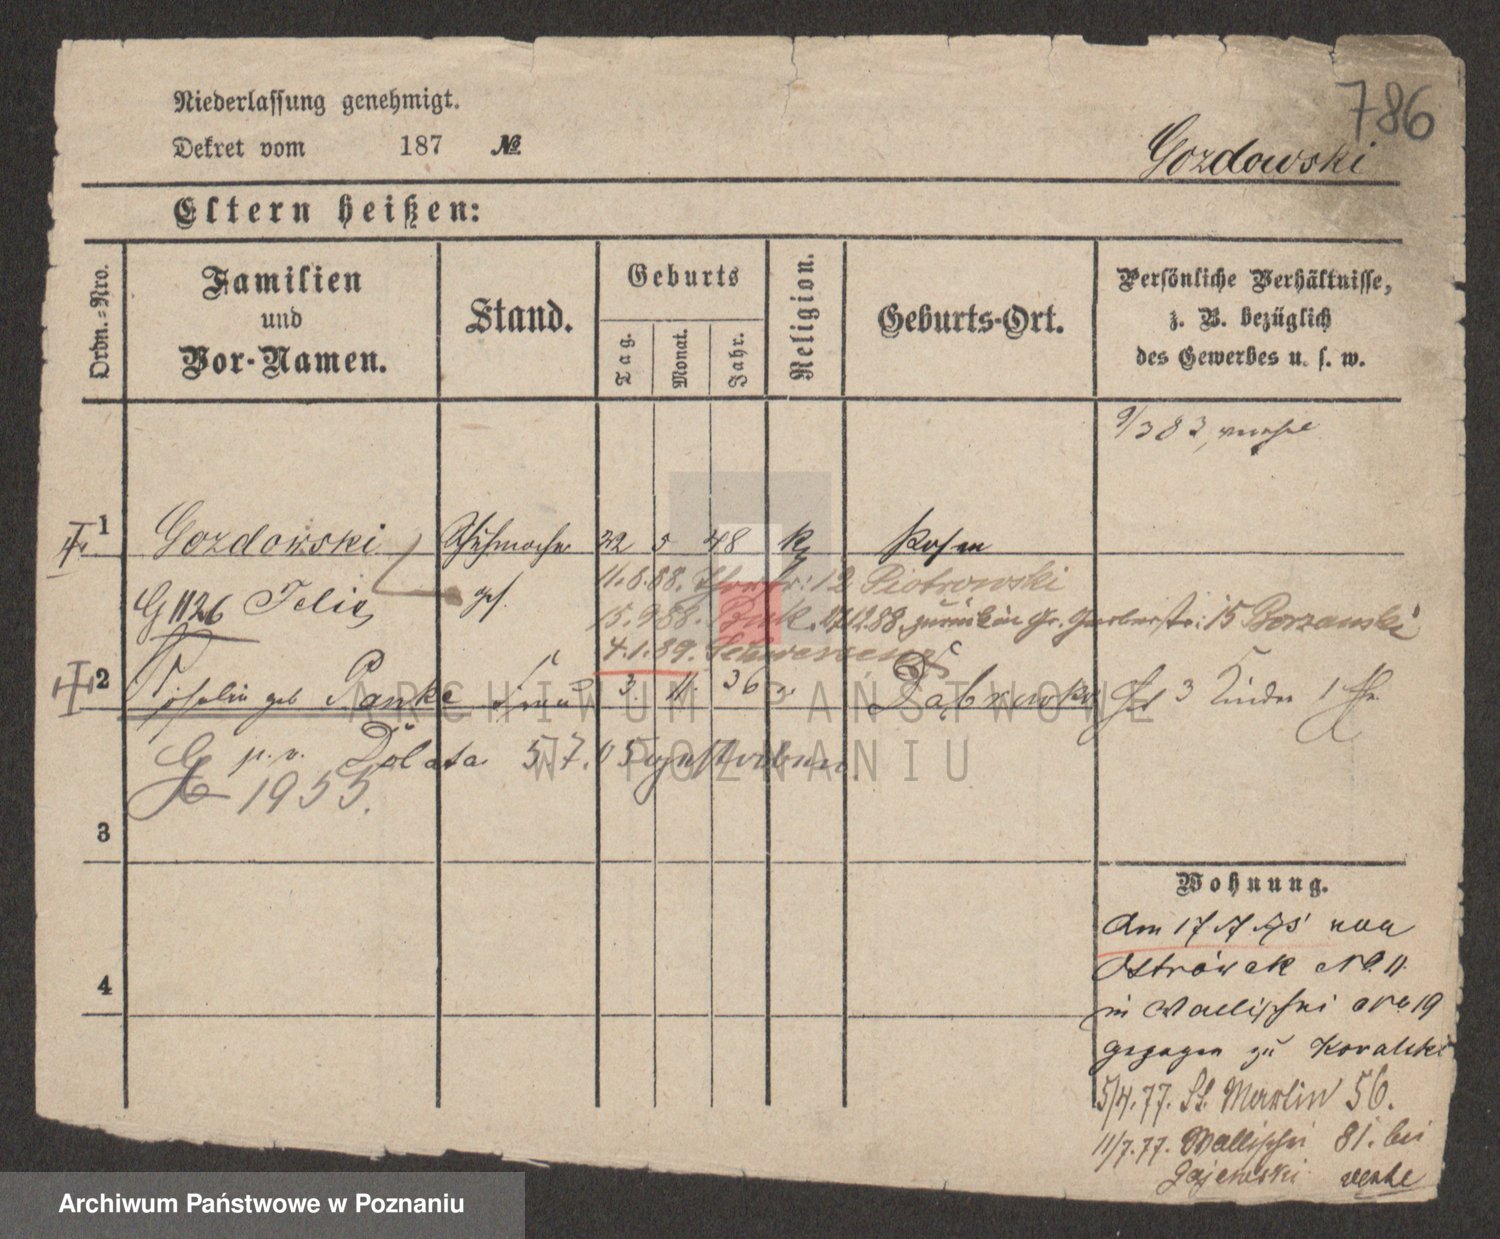 Niederlassung genehmigt.
786
Dekret vom 187 №
Gozdowski
Eltern heißen:
Ordn.-Nro.
Familien und Vor-Namen.
Stand.
Geburts
Tag.
Monat.
Jahr.
Religion.
Geburts-Ort.
Persönliche Verhältnisse,
z. B. bezüglich
des Gewerbes u. s. w.
9/383
1 Gozdowski Schuhmacher 22 5 48 Posen
G 1126 Felix ges.
11.8.88. 12 Piotrowski
15.9.88. Buk. 27.12.88. zurück in Gr. Gerberstr. 15 Borzanski
4.1.89. Schwersenz
2 geb Panke Frau 3. 11. 36 Dąbrowka 3 Kinder 1
G p. v. Dolata 5.7.05 gestorben.
1955.
3
4
Wohnung.
Am 17/7 75 von
Ostrówek No. 11.
in Wallischei No 19
gezogen zu Kovalski
5/4.77. St. Martin 56.
11/7.77. Wallischei 81. bei
Gajewski
ARCHIWUM PAŃSTWOWE
W POZNANIU
Archiwum Państwowe w Poznaniu